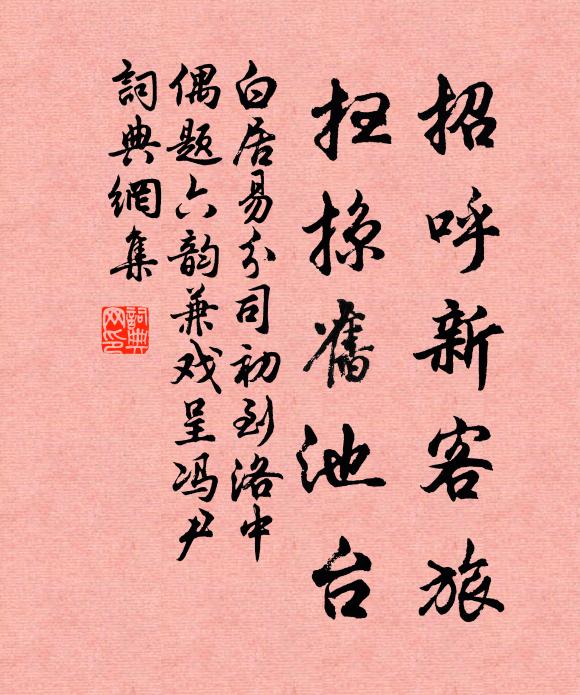 招呼新客旅
扫掠舊池台
白居易分司初到洛中
偶题六韵兼戏呈冯尹
詞典網集
詞典
网印